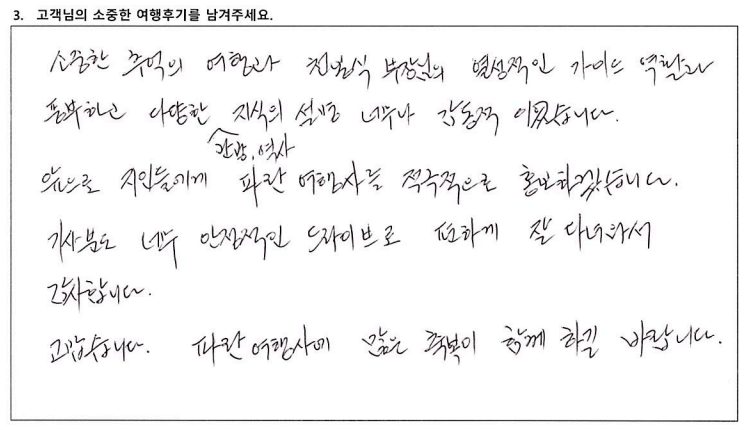 3. 고객님의 소중한 여행후기를 남겨주세요.
소중한 추억의 여행과 부장님의 열성적인 가이드 역할과
풍부하고 다양한 지식의 설명 너무나 감동적 이였습니다.
역사
앞으로 지인들에게 파란 여행사를 적극적으로 홍보하겠습니다.
기사분도 너무 안정적인 드라이브로 편하게 잘 다녀와서
감사합니다.
고맙습니다. 파란여행사에 많은 축복이 함께 하길 바랍니다.